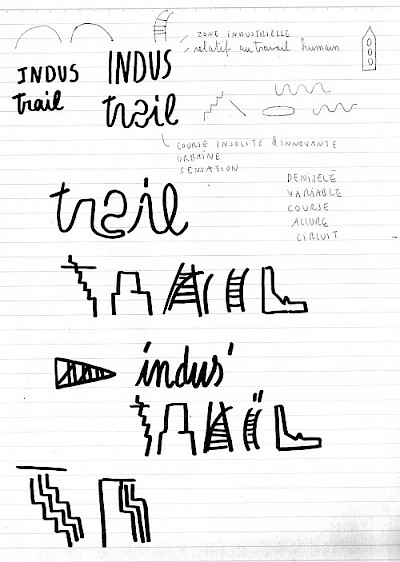 ZONE INDUSTRIELLE
relatif au travail humain
INDUS
trail
INDUS
trail
COURSE INSOLITE & INNOVANTE
URBAINE
SENSATION
DENIVELÉ
VARIABLE
COURSE
ALLURE
CIRCUIT
trail
TRAIL
indus'
TRAÏL